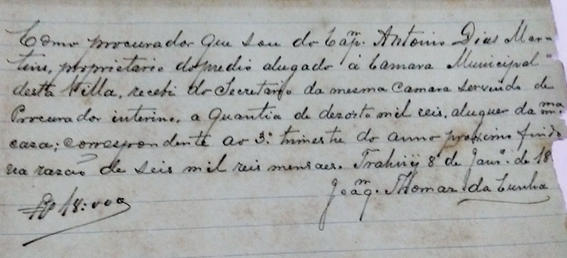 Como procurador que sou do Capᵐ. Antonio Dias Mar-
tins, proprietario do predio alugado á Camara Municipal
desta Villa, recebi do Secretario da mesma Camara servindo de
Procurador interino, a quantia de dezoito mil reis, aluguer da mᵐᵃ
caza; correspondente ao 3º. trimestre do anno proximo findo
na razao de seis mil reis mensaes. Trahiry 8 de Janº. de 18
Joaqᵐ. Thomaz da Cunha
Rs 18:000